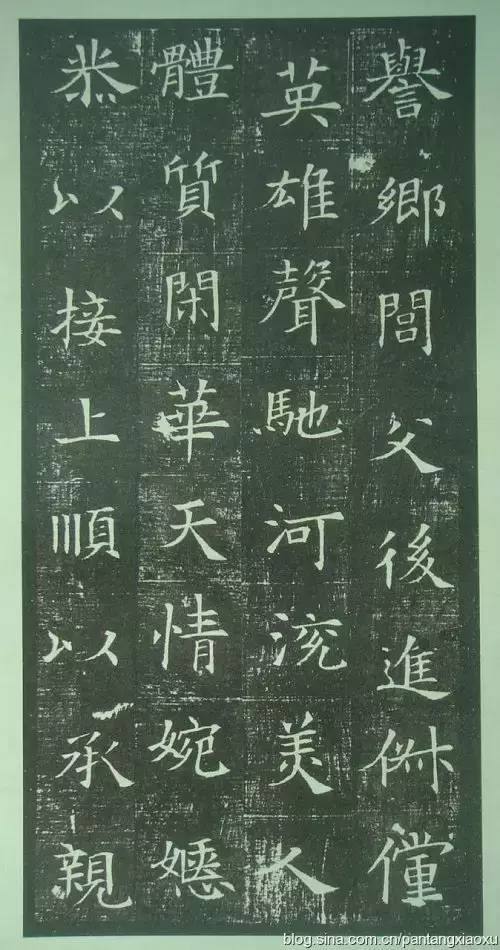 譽鄉閭父後進俶儻
英雄聲馳河渷美人
體質閑華天情婉嫕
恭以接上順以承親
blog.sina.com.cn/pantangxiaoxu